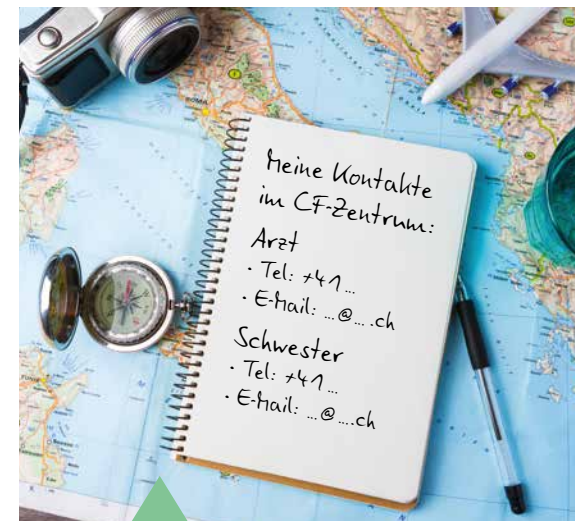 ROMA
Meine Kontakte
im CF-Zentrum:
Arzt
· Tel: +41 ...
· E-Mail: ...@....ch
Schwester
· Tel: +41 ...
· E-Mail: ...@....ch